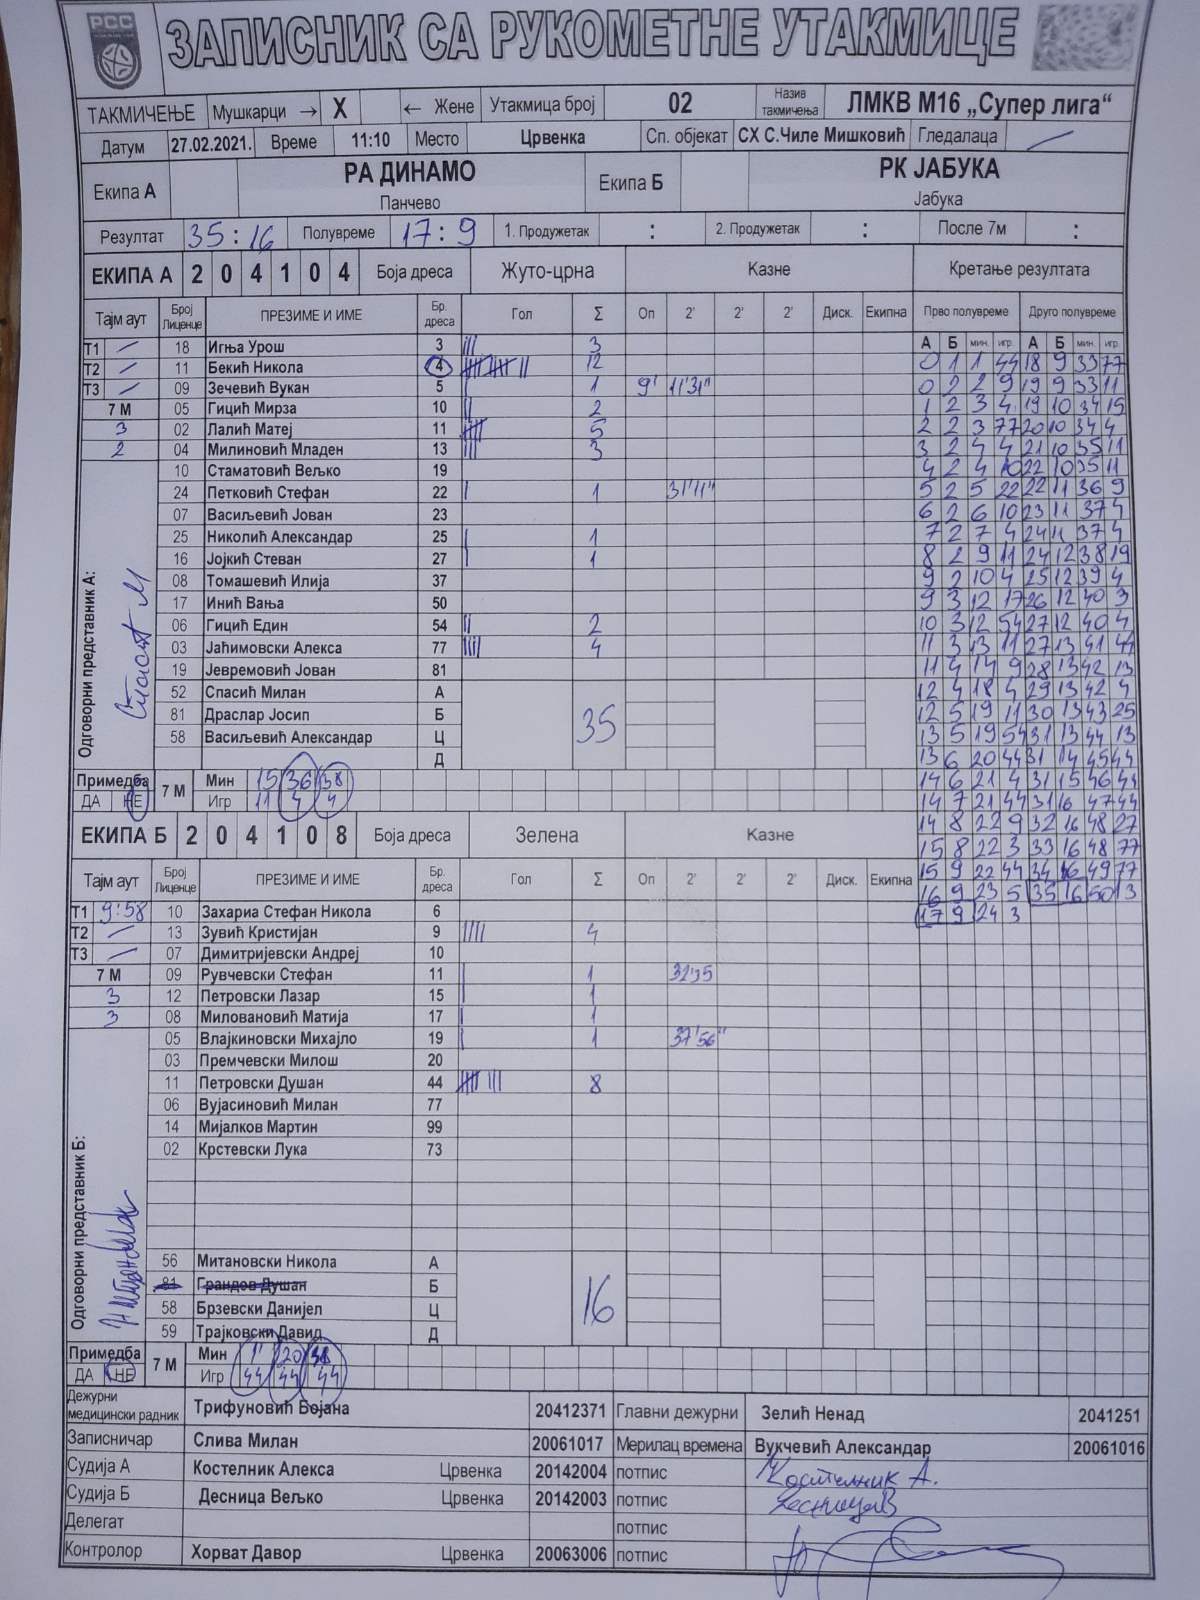 РСС
ЗАПИСНИК СА РУКОМЕТНЕ УТАКМИЦЕ
ТАКМИЧЕЊЕ Мушкарци → X ← Жене Утакмица број 02 Назив такмичења ЛМКВ М16 „Супер лига“
Датум 27.02.2021. Време 11:10 Место Црвенка Сп. објекат СХ С.Чиле Мишковић Гледалаца
Екипа А РА ДИНАМО Екипа Б РК ЈАБУКА
Панчево Јабука
Резултат 35 : 16 Полувреме 17 : 9 1. Продужетак : 2. Продужетак : После 7м :
ЕКИПА А 2 0 4 1 0 4 Боја дреса Жуто-црна Казне Кретање резултата
Тајм аут Број Лиценце ПРЕЗИМЕ И ИМЕ Бр. дреса Гол Σ Оп 2' 2' 2' Диск. Екипна Прво полувреме Друго полувреме
А Б мин. игр. А Б мин. игр.
Т1 18 Игња Урош 3 3 0 1 1 44 18 9 33 77
Т2 11 Бекић Никола 4 12 0 2 2 9 19 9 33 11
Т3 09 Зечевић Вукан 5 1 9' 11'31" 1 2 3 4 19 10 34 15
7 М 05 Гицић Мирза 10 2 2 2 3 77 20 10 34 4
3 02 Лалић Матеј 11 5 3 2 4 4 21 10 35 11
2 04 Милиновић Младен 13 3 4 2 4 10 22 10 35 11
10 Стаматовић Вељко 19 5 2 5 22 22 11 36 9
24 Петковић Стефан 22 1 31'11" 6 2 6 10 23 11 37 4
07 Васиљевић Јован 23 7 2 7 4 24 11 37 4
25 Николић Александар 25 1 8 2 9 11 24 12 38 19
16 Јојкић Стеван 27 1 9 2 10 4 25 12 39 4
08 Томашевић Илија 37 9 3 12 17 26 12 40 3
17 Инић Вања 50 10 3 12 54 27 12 40 4
06 Гицић Един 54 2 11 3 13 11 27 13 41 44
03 Јаћимовски Алекса 77 4 11 4 14 9 28 13 42 13
19 Јевремовић Јован 81 12 4 18 4 29 13 42 4
52 Спасић Милан А 12 5 19 11 30 13 43 25
81 Драслар Јосип Б 35 13 5 19 54 31 13 44 13
58 Васиљевић Александар Ц 13 6 20 44 31 14 45 44
Д 14 6 21 4 31 15 46 44
Одговорни представник А:
Примедба ДА НЕ 7 М Мин 15 36 38 14 7 21 44 31 16 47 44
Игр 11 4 4 14 8 22 9 32 16 48 27
ЕКИПА Б 2 0 4 1 0 8 Боја дреса Зелена Казне 15 8 22 3 33 16 48 77
Тајм аут Број Лиценце ПРЕЗИМЕ И ИМЕ Бр. дреса Гол Σ Оп 2' 2' 2' Диск. Екипна 15 9 22 44 34 16 49 77
16 9 23 5 35 16 50 13
Т1 9:58 10 Захариа Стефан Никола 6 17 9 24 3
Т2 13 Зувић Кристијан 9 4
Т3 07 Димитријевски Андреј 10
7 М 09 Рувчевски Стефан 11 1 32'35
3 12 Петровски Лазар 15 1
3 08 Миловановић Матија 17 1
05 Влајкиновски Михајло 19 1 37'56"
03 Премчевски Милош 20
11 Петровски Душан 44 8
06 Вујасиновић Милан 77
14 Мијалков Мартин 99
02 Крстевски Лука 73
Одговорни представник Б:
56 Митановски Никола А
81 Грандов Душан Б
58 Брзевски Данијел Ц 16
59 Трајковски Давид Д
Примедба ДА НЕ 7 М Мин 1' 20 38
Игр 44 44 44
Дежурни медицински радник Трифуновић Бојана 20412371 Главни дежурни Зелић Ненад 2041251
Записничар Слива Милан 20061017 Мерилац времена Вукчевић Александар 20061016
Судија А Костелник Алекса Црвенка 20142004 потпис Костелник А.
Судија Б Десница Вељко Црвенка 20142003 потпис
Делегат потпис
Контролор Хорват Давор Црвенка 20063006 потпис